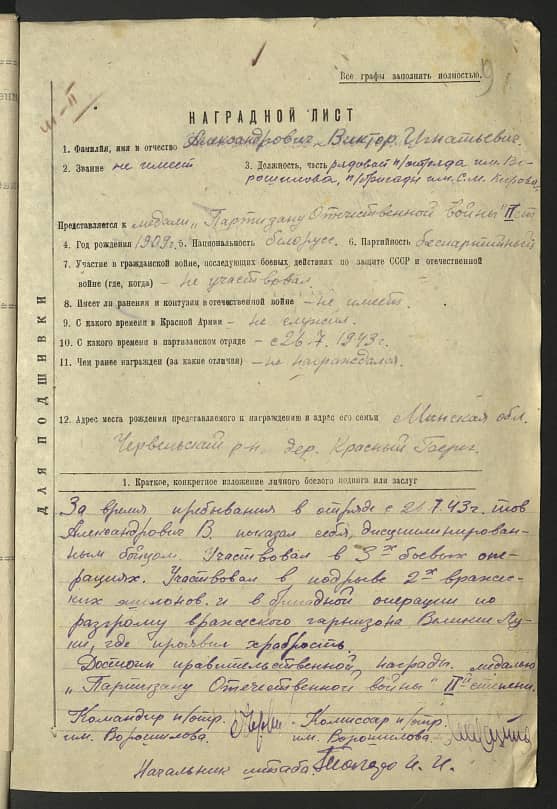 Все графы заполнять полностью.
9
III-II
НАГРАДНОЙ ЛИСТ
1. Фамилия, имя и отчество Александрович Виктор Игнатьевич
2. Звание не имеет 3. Должность, часть рядовой п/отряда им. Во-
рошилова, п/бригады им. С.М. Кирова
Представляется к медали „Партизану Отечественной войны" II ст
4. Год рождения 1909 г. 5. Национальность белорус. 6. Партийность беспартийный
7. Участие в гражданской войне, последующих боевых действиях по защите СССР и отечественной
войне (где, когда) — не участвовал
8. Имеет ли ранения и контузии в отечественной войне — не имеет.
9. С какого времени в Красной Армии — не служил.
10. С какого времени в партизанском отряде — с 26.7.1943 г.
11. Чем ранее награжден (за какие отличия) — не награждался.
12. Адрес места рождения представляемого к награждению и адрес его семьи Минская обл.
Червеньский р-н. дер. Красный
ДЛЯ ПОДШИВКИ
1. Краткое, конкретное изложение личного боевого подвига или заслуг
За время пребывания в отряде с 43 г. тов
Александрович В. показал себя, дисциплинирован-
ным бойцом. Участвовал в 3х боевых опе-
рациях. Участвовал в подрыве 2х вражес-
ких эшелонов. и в бригадной операции по
разгрому вражеского гарнизона Великие Лу-
ки, где проявил храбрость.
Достоин правительственной награды медалью
„Партизану Отечественной войны" II степени.
Командир п/отр. Комиссар п/отр.
им. Ворошилова. им. Ворошилова.
Начальник штаба И. И.